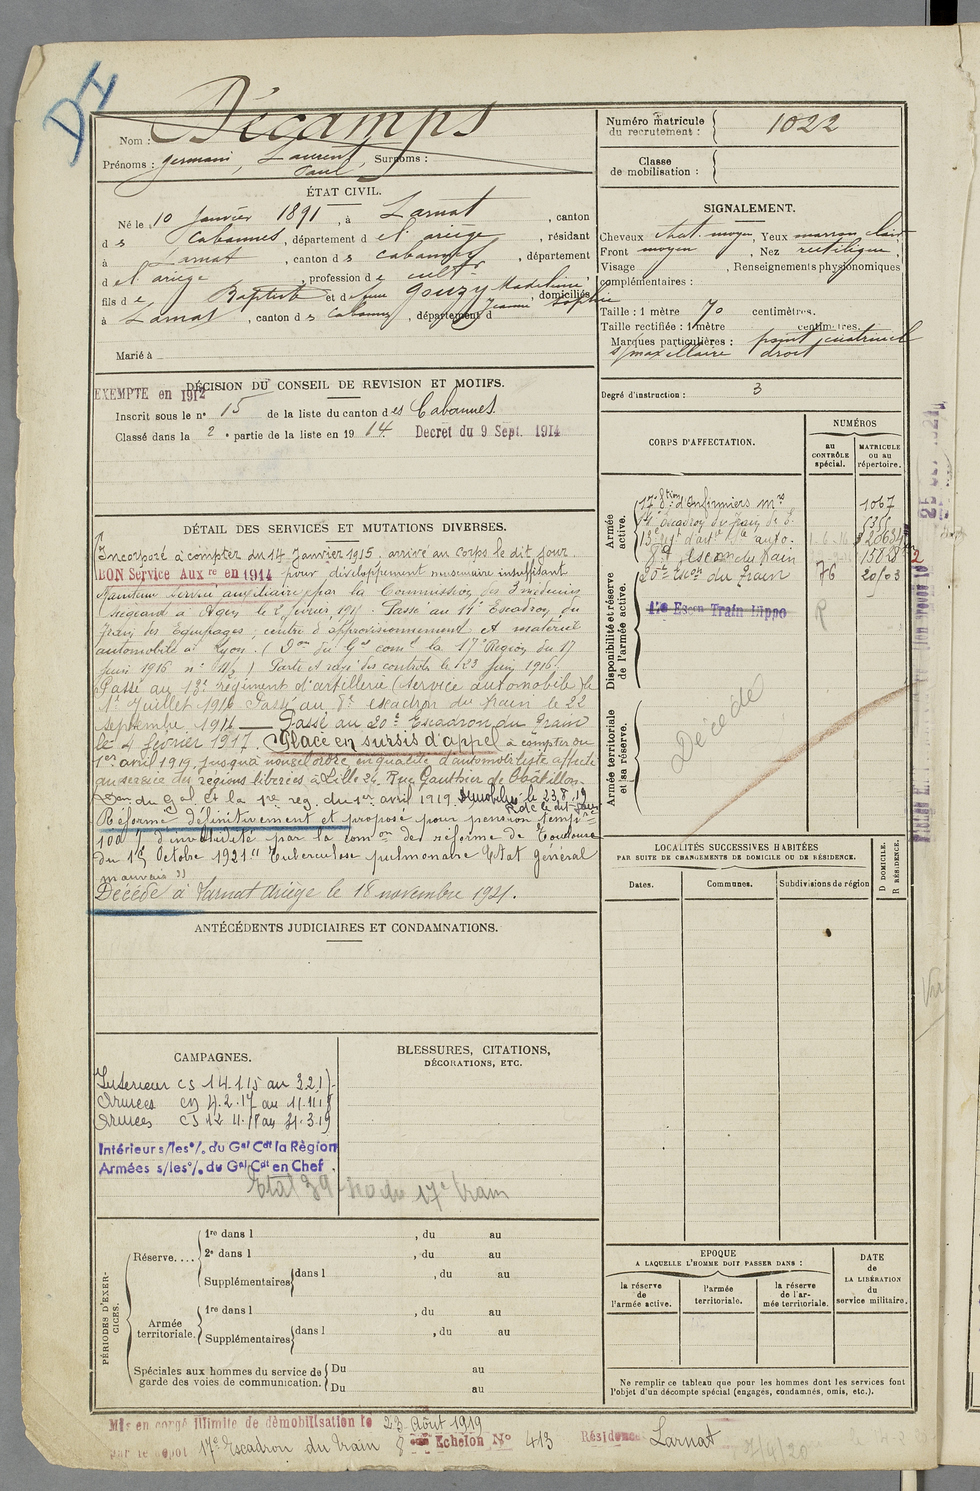 DI
Nom : Décamps
Prénoms : Germain, Laurent, Surnoms :
Paul
ÉTAT CIVIL.
Né le 10 Janvier 1891, à Larnat, canton
d es Cabannes, département d e l'ariège, résidant
à Larnat, canton d es Cabannes, département
d e l'ariège, profession d e cultr
fils d e Baptiste et d e feue Gouzy Madeleine, domiciliés
Jeanne Sophie
à Larnat, canton d es Cabannes, département d
Marié à
EXEMPTE en 1912
DÉCISION DU CONSEIL DE REVISION ET MOTIFS.
Inscrit sous le no 15 de la liste du canton d es Cabannes
Classé dans la 2e partie de la liste en 1914. Decret du 9 Sept. 1914
DÉTAIL DES SERVICES ET MUTATIONS DIVERSES.
Incorporé à compter du 14 Janvier 1915. arrivé au corps le dit jour.
BON Service Auxre en 1914 pour développement musculaire insuffisant
Maintenu service auxiliaire par la Commission des 3 médecins
siégeant à Agen le 2 février 191 Passé au 14e Escadron du
train des Equipages, centre d'approvisionnement et matériel
automobile à Lyon. (Don du Gal comt la 17e Région du 17
juin 1916 no ) Parti et rayé des contrôles le 23 Juin 1916.
Passé au 13e régiment d'artillerie (service automobile) le
1er Juillet 1916 Passé au 8e escadron du train le 22
septembre 1916 Passé au 20e Escadron du Train
le 4 février 1917. Placé en sursis d'appel à compter du
1er avril 1919, jusqu'à nouvel ordre en qualité d'automobiliste affecté
au service des régions libérées à Lille 24, Rue Gauthier de Chatillon
Don du Gal Ct la 1re reg. du 1er avril 1919. Démobilisé le 23.8.19
Rdc le dit jour
Réformé définitivement et proposé pour pension tempre
100 % d'invalidité par la comon de réforme de Toulouse
du 1er Octobre 1921 "Tuberculose pulmonaire Etat général
mauvais"
Décédé à Larnat Ariège le 18 novembre 1921.
ANTÉCÉDENTS JUDICIAIRES ET CONDAMNATIONS.
CAMPAGNES.
Intérieur CS 14.1.15 au 3.2.17
Armées CD 4.2.17 au 11.11.18
Armées CS 12.11.18 au 31.3.19
Intérieur s/les o/. du Gal Cdt la Région
Armées s/les o/. du Gal Cdt en Chef.
Etat 39 17e train
BLESSURES, CITATIONS,
DÉCORATIONS, ETC.
PÉRIODES D'EXERCICES.
Réserve....
1re dans l , du au
2e dans l , du au
Supplémentaires dans l , du au
Armée territoriale.
1re dans l , du au
Supplémentaires dans l , du au
Spéciales aux hommes du service de garde des voies de communication.
Du au
Du au
Numéro matricule du recrutement : 1022
Classe de mobilisation :
SIGNALEMENT.
Cheveux chat. moyen, Yeux marron clair
Front moyen, Nez rectiligne,
Visage , Renseignements physionomiques
complémentaires :
Taille : 1 mètre 70 centimètres.
Taille rectifiée : 1 mètre centimètres.
Marques particulières : point cicatriciel
s/ maxillaire droit
Degré d'instruction : 3
CORPS D'AFFECTATION.
NUMÉROS
au CONTRÔLE spécial.
MATRICULE ou au répertoire.
Armée active.
17e Son d'Infirmiers mres 1067
14e escadron du train de E.
13e Rgt d'artie auto.
8e escon du train
20e Escon du Train 76
Disponibilité et réserve de l'armée active.
Escon Train Hippo
Armée territoriale et sa réserve.
Décédé
LOCALITÉS SUCCESSIVES HABITÉES
PAR SUITE DE CHANGEMENTS DE DOMICILE OU DE RÉSIDENCE.
Dates.
Communes.
Subdivisions de région
D DOMICILE.
R RÉSIDENCE.
EPOQUE
A LAQUELLE L'HOMME DOIT PASSER DANS :
la réserve de l'armée active.
l'armée territoriale.
la réserve de l'armée territoriale.
DATE de LA LIBÉRATION du service militaire.
Ne remplir ce tableau que pour les hommes dont les services font
l'objet d'un décompte spécial (engagés, condamnés, omis, etc.).
Mis en congé illimité de démobilisation le 23 Août 1919
par le dépôt 17e Escadron du train 8 eme Echelon No 413 Résidence Larnat